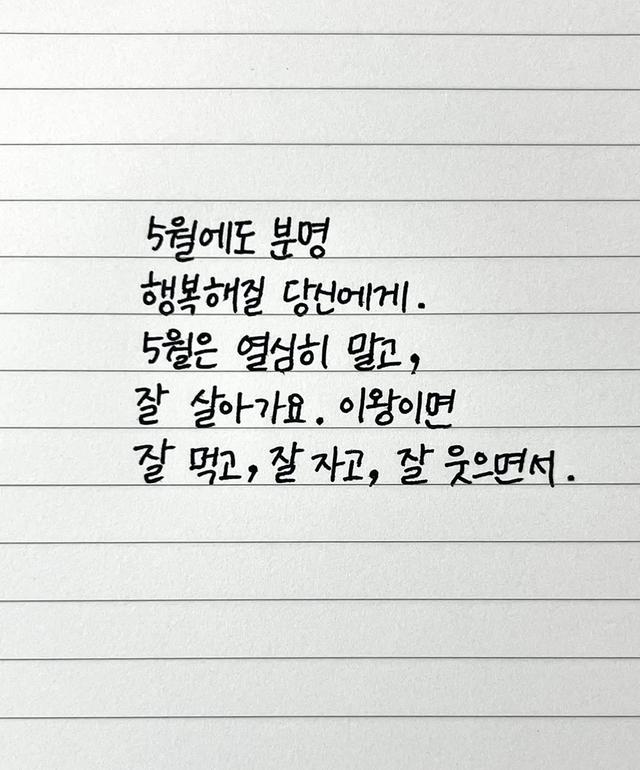 5월에도 분명
행복해질 당신에게.
5월은 열심히 말고,
잘 살아가요. 이왕이면
잘 먹고, 잘 자고, 잘 웃으면서.